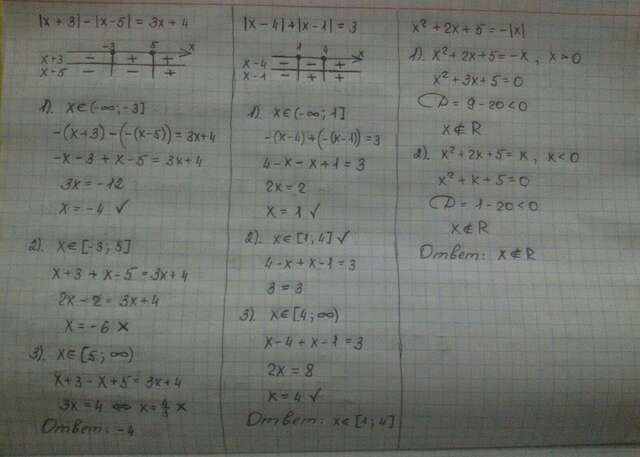 |x + 3| - |x - 5| = 3x + 4
-3 5 x
x+3 - + +
x-5 - - +
1). x ∈ (-∞; -3]
-(x+3) - (-(x-5)) = 3x+4
-x - 3 + x - 5 = 3x + 4
3x = -12
x = -4 ✓
2). x ∈ [-3; 5]
x+3 + x-5 = 3x+4
2x - 2 = 3x+4
x = -6 ×
3). x ∈ [5; ∞)
x+3 - x+5 = 3x+4
3x = 4 ⇔ x = 4/3 ×
Ответ: -4
|x - 4| + |x - 1| = 3
1 4 x
x-4 - - +
x-1 - + +
1). x ∈ (-∞; 1]
-(x-4) + (-(x-1)) = 3
4 - x - x + 1 = 3
2x = 2
x = 1 ✓
2). x ∈ [1; 4] ✓
4 - x + x - 1 = 3
3 = 3
3). x ∈ [4; ∞)
x - 4 + x - 1 = 3
2x = 8
x = 4 ✓
Ответ: x ∈ [1; 4]
x² + 2x + 5 = -|x|
1). x² + 2x + 5 = -x, x ⩾ 0
x² + 3x + 5 = 0
D = 9 - 20 < 0
x ∉ R
2). x² + 2x + 5 = x, x < 0
x² + x + 5 = 0
D = 1 - 20 < 0
x ∉ R
Ответ: x ∉ R